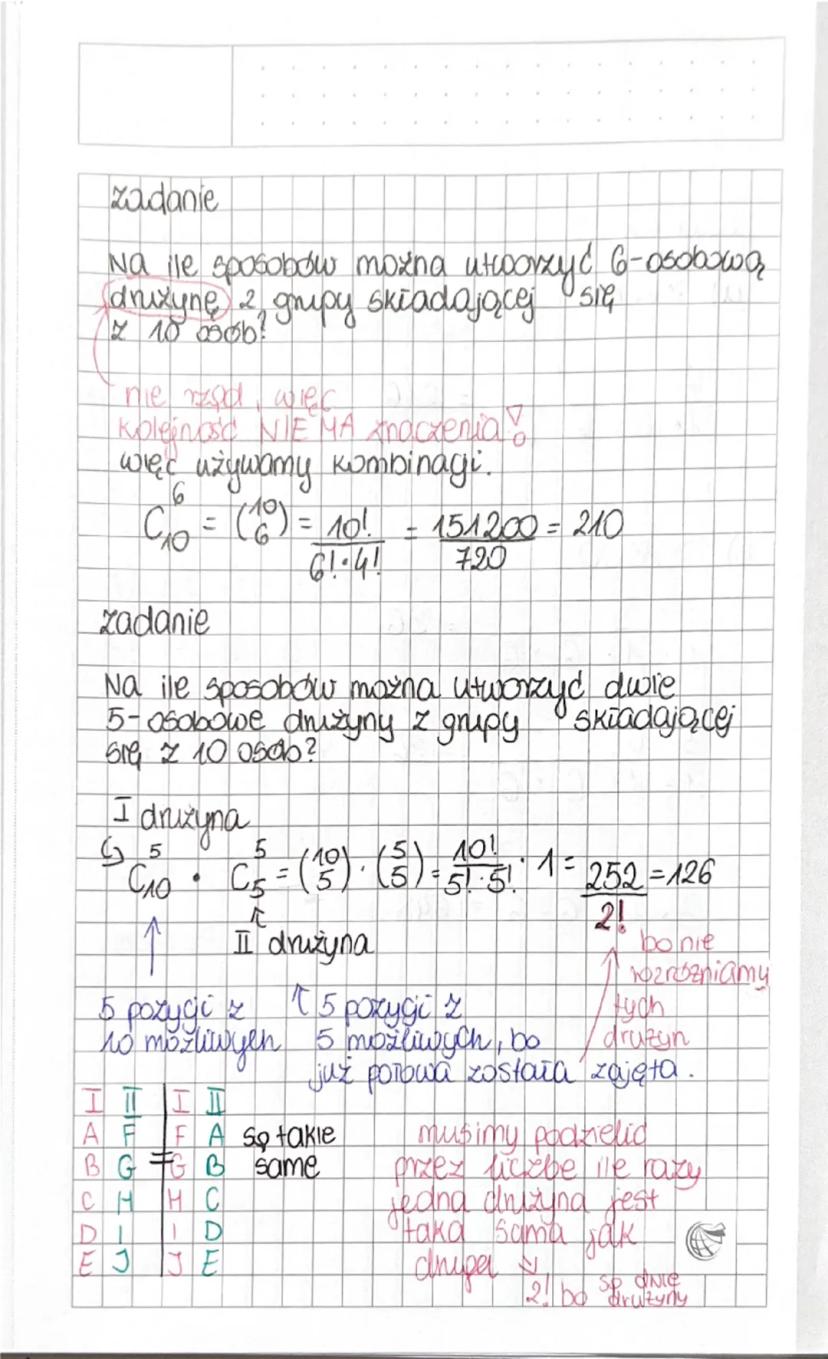 zadanie
Na ile sposobów można utworzyć 6-osobową
drużynę z grupy składającej się
z 10 osób?
nie rząd, więc
kolejność NIE MA znaczenia!
więc używamy kombinacji.
C₁₀⁶ = (10 6) = 10!/(6!·4!) = 151200/720 = 210
zadanie
Na ile sposobów można utworzyć dwie
5-osobowe drużyny z grupy składającej
się z 10 osób?
I drużyna
↳ C₁₀⁵ · C₅⁵ = (10 5) · (5 5) = 10!/(5!·5!) · 1 = 252/2! = 126
↑ ↑ II drużyna
bo nie
rozróżniamy
tych
drużyn
5 pozycji z
10 możliwych
↑ 5 pozycji z
5 możliwych, bo
już połowa została zajęta.
I II | I II
A F | F A są takie
B G = G B same
C H | H C
D I | I D
E J | J E
musimy podzielić
przez liczbę ile razy
jedna drużyna jest
taka sama jak
druga ⇒
2! bo są dwie
drużyny